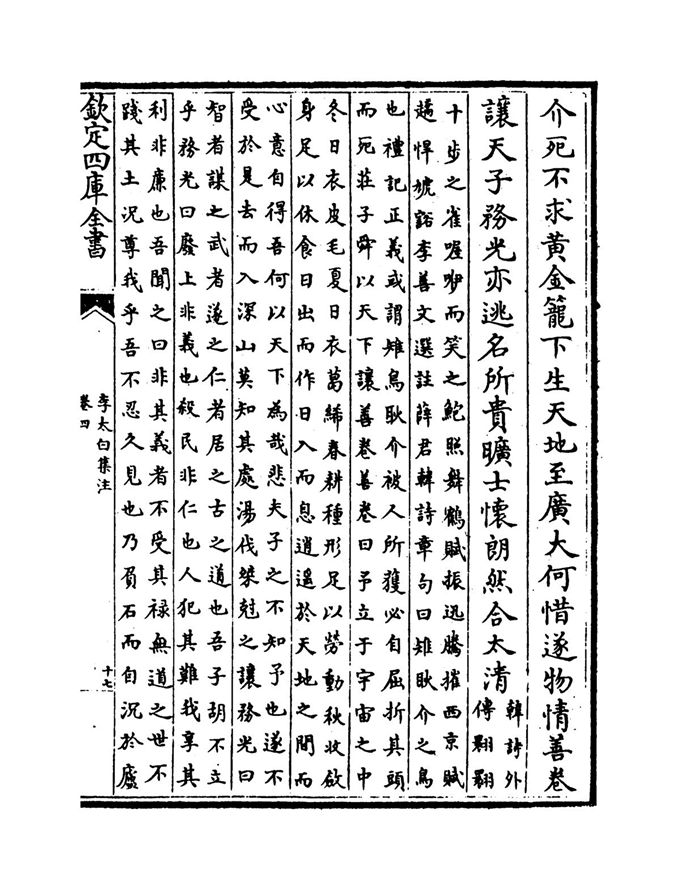 介死不求黄金籠下生天地至廣大何惜遂物情善卷
讓天子務光亦逃名所貴曠士懷朗然合太清
韓詩外
傳翾翾
十步之雀喔咿而笑之鮑照舞鶴賦振迅騰摧西京賦
趫悍虓豁李善文選註薛君韓詩章句曰雉耿介之鳥
也禮記正義或謂雉鳥耿介被人所獲必自屈折其頭
而死莊子舜以天下讓善卷善卷曰予立于宇宙之中
冬日衣皮毛夏日衣葛絺春耕種形足以勞動秋收斂
身足以休食日出而作日入而息逍遥於天地之間而
心意自得吾何以天下為哉悲夫子之不知予也遂不
受於是去而入深山莫知其處湯伐桀尅之讓務光曰
智者謀之武者遂之仁者居之古之道也吾子胡不立
乎務光曰廢上非義也殺民非仁也人犯其難我享其
利非廉也吾聞之曰非其義者不受其禄無道之世不
踐其土況尊我乎吾不忍久見也乃負石而自沉於廬
欽定四庫全書
李太白集注
卷四
十七